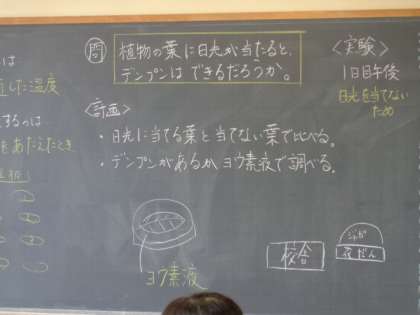 は
した温度
するのは
をあたえたとき
問 植物の葉に日光が当たると、
デンプンはできるだろうか。
〈計画〉
・日光に当てる葉と当てない葉で比べる。
・デンプンがあるかヨウ素液で調べる。
ヨウ素液
〈実験〉
1日目午後
日光を当てない
ため
校舎
ジャガ
花だん